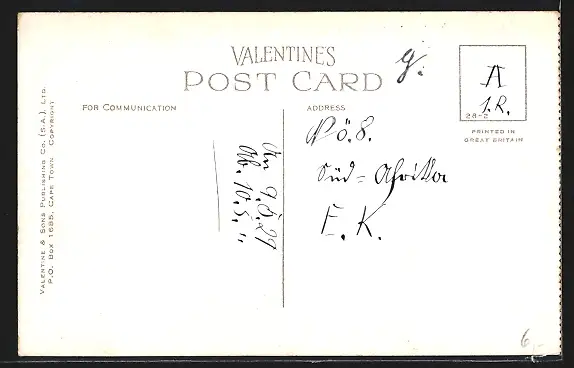 VALENTINE'S
POST CARD
g.
A
1.R.
28-2
PRINTED IN
GREAT BRITAIN
FOR COMMUNICATION
ADDRESS
VALENTINE & SONS PUBLISHING CO. (S.A.), LTD.
P.O. BOX 1685, CAPE TOWN COPYRIGHT
An 9.5.29
Ab. 10.5. "
Süd=Afrika
E. K.
6,-